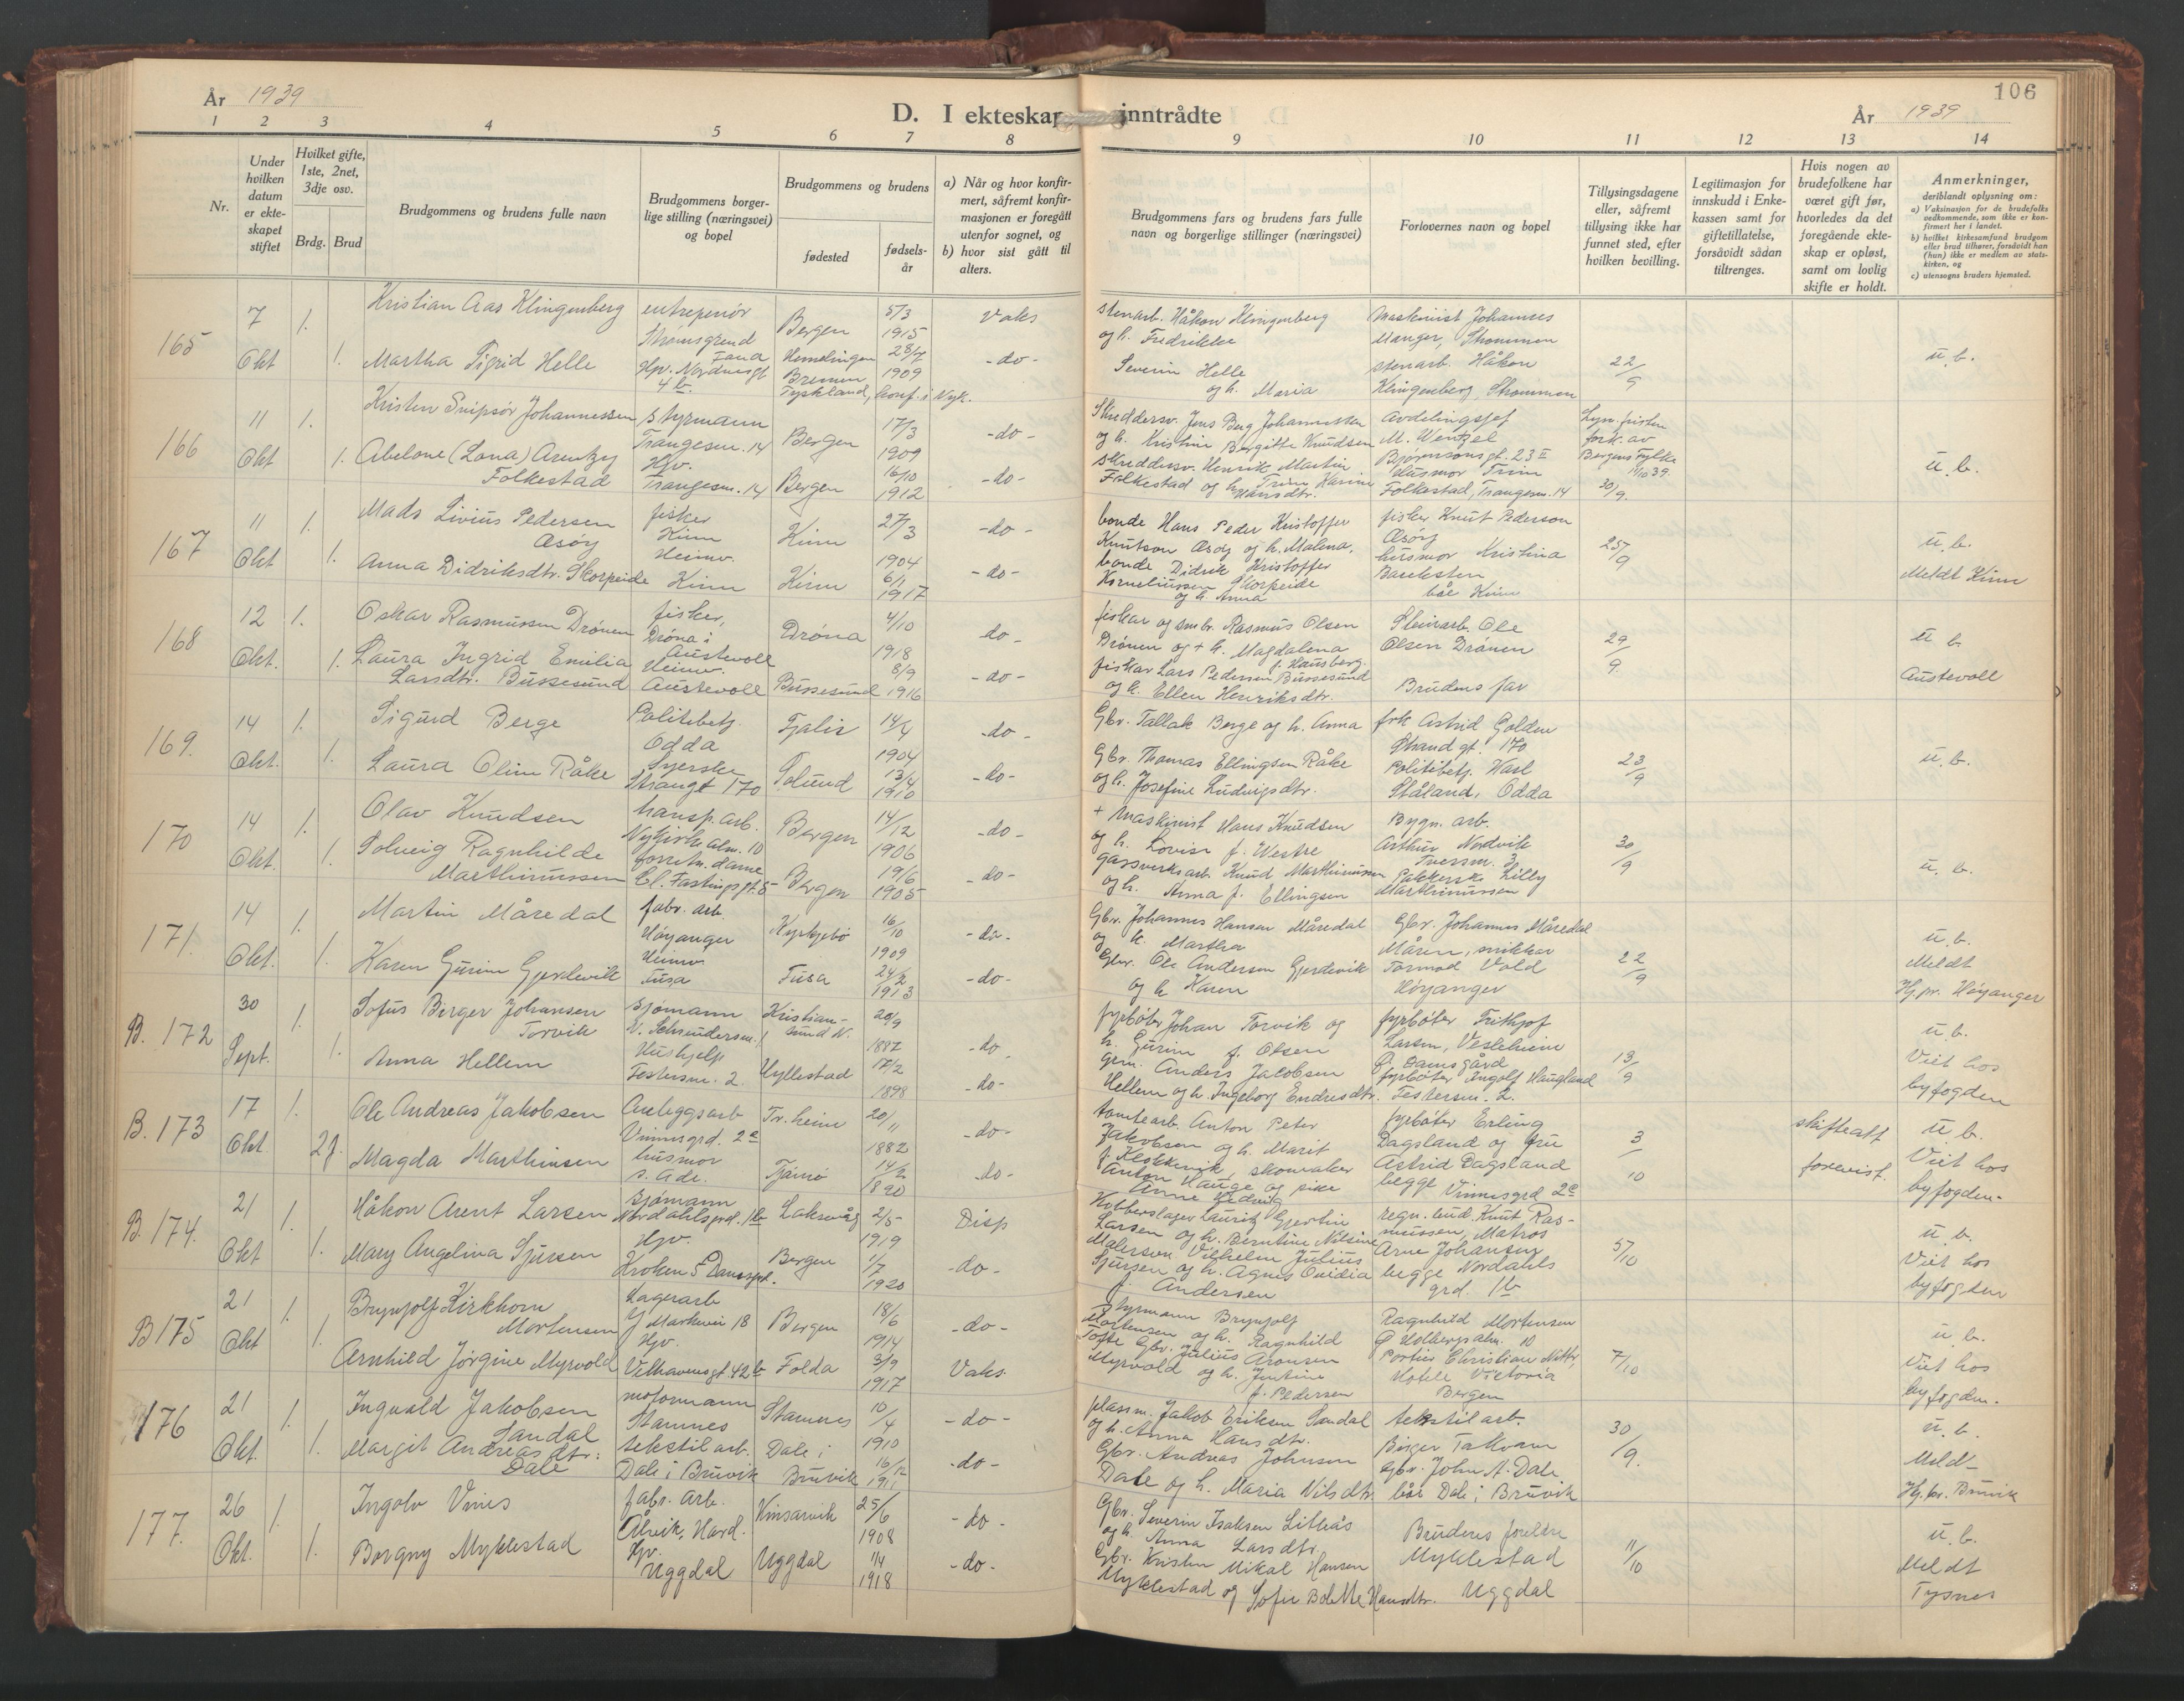 År 1939
D. I ekteskap inntrådte
År 1939
106
1 2 3 4 5 6 7 8 9 10 11 12 13 14
Nr.
Under hvilken datum er ekte- skapet stiftet
Hvilket gifte, 1ste, 2net, 3dje osv.
Brdg. Brud
Brudgommens og brudens fulle navn
Brudgommens borger- lige stilling (næringsvei) og bopel
Brudgommens og brudens
fødested
fødsels- år
a) Når og hvor konfir- mert, såfremt konfir- masjonen er foregått utenfor sognet, og
b) hvor sist gått til alters.
Brudgommens fars og brudens fars fulle navn og borgerlige stillinger (næringsvei)
Forlovernes navn og bopel
Tillysingsdagene eller, såfremt tillysing ikke har funnet sted, efter hvilken bevilling.
Legitimasjon for innskudd i Enke- kassen samt for giftetillatelse, forsåvidt sådan tiltrenges.
Hvis nogen av brudefolkene har været gift før, hvorledes da det foregående ekte- skap er opløst, samt om lovlig skifte er holdt.
Anmerkninger,
deriblandt oplysning om:
a) Vaksinasjon for de brudefolks vedkommende, som ikke er kon- firmert her i landet.
b) hvilket kirkesamfund brudgom eller brud tilhører, forsåvidt han (hun) ikke er medlem av stats- kirken, og
c) utensogns bruders hjemsted.
165
7 Okt
1. 1.
Kristian Aas Klingenberg
Martha Sigrid Helle
entreprenør
Strømsgrend
Fana
Hpv. Nordnesgt
4b.
Bergen
Hemelingen
Bremen
Tyskland, konf. i Nyk.
5/3 1915
28/7 1909
Vaks
-do-
stenarb. Håkon Klingenberg
og h. Fredrikke
Severin Helle
og h. Maria
Maskinist Johannes
Manger, Strømmen
stenarb. Håkon
Klingenberg, Strømmen
22/9
u. b.
166
11 Okt
1. 1.
Kristen Snipsør Johannessen
Abelone (Lona) Arentzy
Folkestad
Styrmann
Trangesm. 14
Hpv.
Trangesm. 14
Bergen
Bergen
17/3 1909
16/10 1912
-do-
-do-
Skreddersv. Jens Berg Johannessen
og h. Kristine Bergitte Knudsen
Skreddersv. Henrik Martin
Folkestad og h. Trine Karine
Hansdtr.
Avdelingssjef
M. Wentzel
Bjørnsonsgt. 23 II
Husmor Trine
Folkestad, Trangesm. 14
Lysn. fristen
fork. av
Bergens Fylke
1/10 39
30/9
u. b.
167
11 Okt
1. 1.
Mads Livius Pedersen
Æsøy
Anna Didriksdtr. Skorpeide
fisker
Kinn
Heimv.
Kinn
Kinn
Kinn
27/3 1904
6/1 1917
-do-
-do-
bonde Hans Peder Kristoffer
Knutson Æsøy og h. Malena.
bonde Didrik Kristoffer
Korneliussen Skorpeide
og h. Anna
fisker Knut Pederson
Æsøy
husmor Kristina
båe Kinn
25/9
u. b.
Meldt Kinn
168
12 Okt.
1. 1.
Oskar Rasmussen Drønen
Laura Ingrid Emilia
Larsdtr. Bussesund
fisker,
Drøna i
Austevoll
Heimv.
Austevoll
Drøna
Bussesund
4/10 1918
8/9 1916
do-
-do-
fiskar og smbr. Rasmus Olsen
Drønen og + h. Magdalena
f. Hausberg.
fiskar Lars Pedersen Bussesund
og h. Ellen Henriksdtr.
Steinarb. Ole
Olsen Drønen
Brudens far
29/9.
u. b.
Austevoll
169.
14 Okt.
1. 1.
Sigurd Berge
Laura Oline Råke
Politibetj.
Odda
Syerske
Strangt 170
Fjaler
Solund
14/4 1904
13/4 1910
-do-
-do-
Gbr. Tallak Berge og h. Anna
Gbr. Thomas Ellingsen Råke
og h. Josefine Ludvigsdtr.
frk Astrid Golden
Strandgt. 170
Politibetj. Karl
Ståland, Odda
23/9
u. b.
170
14 Okt.
1. 1.
Olav Knudsen
Solveig Ragnhilde
Marthinussen
transp. arb.
Nykirkealm. 10
forretn. dame
Cl. Fastingsgt. 5
Bergen
Bergen
14/12 1906
19/6 1905
-do-
-do-
+ Maskinist Hans Knudsen
og h. Lovise f. Westre
Gassverksarb. Knud Marthinussen
og h. Anna f. Ellingsen
Bygn. arb.
Arthur Nordvik
Tversm. 3
Pakkerske Lilly
Marthinussen
30/9
u. b.
171.
14 Okt.
1. 1.
Martin Måredal
Karen Gurine Gjerdevik
fabr. arb.
Høyanger
Heimv.
Fusa
Kyrkjebø
Fusa
16/10 1909
24/2 1913
-do-
-do-
Gbr. Johannes Hansen Måredal
og h. Martha
Gbr. Ole Anderson Gjerdevik
og h Karen
Gbr. Johannes Måredal
Måren, snikkar
Tormod Vold
Høyanger
22/9
u. b.
Meldt
Hj.pr. Høyanger
B. 172
30 Sept.
1. 1.
Sofus Berger Johansen
Torvik
Anna Hellem
Sjømann
Hushjelp
Festersm. 2.
Kristian-
sund N.
Hyllestad
20/9 1887
17/2 1898
-do
-do-
fyrbøter Johan Torvik og
h. Gurine f. Olsen
Grm. Anders Jakobsen
Hellem og h. Ingeborg Endresdtr.
fyrbøter Frithjof
Larsen, Vesleheim
Ø. Damsgård
fyrbøter Ingolf Haugland
Festersm. 2.
13/9
u. b.
Viet hos
byfogden
B. 173
17 Okt.
1. 2 f.
Ole Andreas Jakobsen
Magda Marthinsen
Anleggsarb
Vinnesgrd. 2c
husmor
s. ade.
Tr.heim
Tjømø
20/11 1882
14/2 1890
-do-
-do-
tomtearb. Anton Peter
Jakobsen og h. Marit
f. Klokkervik, skomaker
Anton Hauge og pike
Anne Hedvig
fyrbøter Erling
Dagsland og fru
Astrid Dagsland
begge Vinnesgrd 2c
3/10
skifteatt
forevist.
u. b.
Viet hos
byfogden-
B. 174.
21 Okt
1. 1.
Håkon Arent Larsen
Mary Angelina Sjursen
Sjømann
Nordahlsgrd. 1b
Hpv.
Kroken 5 Damsgrd.
Laksevåg
Bergen
2/5 1919
1/7 1920
Disp
-do-
Kobberslager Lauritz Gjertin
Larsen og h. Berntine Nilsine
Malersv. Vilhelm Julius
Sjursen og h. Agnes Ovidia
f. Andersen
regn. bud. Knut Ras-
mussen, Matros
Arne Johansen
begge Nordahls
grd. 1b
5/10
u. b.
Viet hos
byfogden
B 175
21 Okt
1. 1.
Brynjolf Kirkhorn
Mortensen
Arnhild Jørgine Myrvold
Lagerarb
Y Markevei 18
Hpv.
Velhavensgt. 42b
Bergen
Folda
18/6 1914
3/9 1917
-do-
Vaks.
Styrmann Brynjolf
Mortensen og h. Ragnhild
Tofte Gbr. Julius Aronsen
Myrvold og h. Justine
f. Pedersen
Ragnhild Mortensen
Ø Holbergsalm. 10
Portier Christian Nittr
Hotell Victoria
Bergen
7/10
u. b.
Viet hos
byfogden.
176
21 Okt.
1. 1.
Ingvald Jakobsen
Sandal
Margit Andreasdtr:
Dale
motormann
Stamnes
tekstilarb.
Dale i Bruvik
Stamnes
Dale i
Bruvik
10/4 1910
16/12 1911
-do-
-do-
plassm. Jakob Eriksen Sandal
og h. Anna Hansdtr.
Gbr. Andreas Johnsen
Dale og h. Maria Nilsdtr
tekstilarb.
Birger Takvam
Gbr. John A. Dale
båe Dale i Bruvik
30/9.
u. b.
Meld-
Hj.pr. Bruvik
177.
26 Okt.
1. 1.
Ingolv Vines
Borgny Myklestad
fabr. arb.
Ålvik, Hard.
Hpv.
Uggdal
Kinsarvik
Uggdal
25/6 1908
1/4 1918
-do-
-do-
Gbr. Severin Isaksen Litleås
og h. Anna Larsdtr.
Gbr. Kristen Mikal Hansen
Myklestad og Sofie Bolette Hansdtr.
Brudens foreldre
Myklestad
Uggdal
11/10
u. b.
Meldt
Tysnes